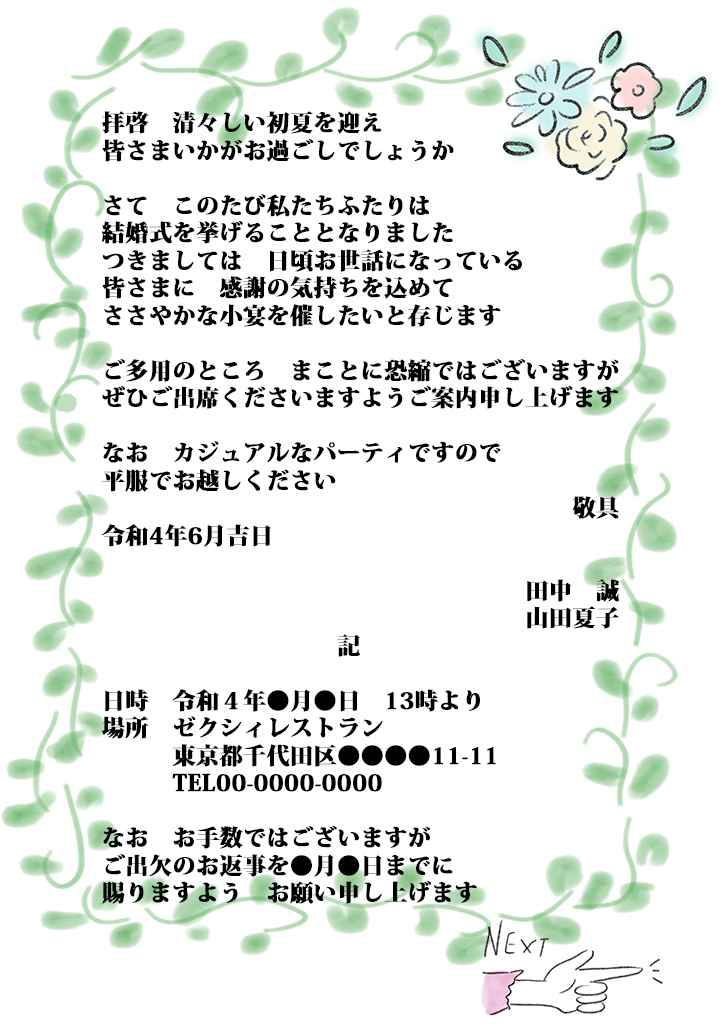 拝啓　清々しい初夏を迎え
皆さまいかがお過ごしでしょうか
さて　このたび私たちふたりは
結婚式を挙げることとなりました
つきましては　日頃お世話になっている
皆さまに　感謝の気持ちを込めて
ささやかな小宴を催したいと存じます
ご多用のところ　まことに恐縮ではございますが
ぜひご出席くださいますようご案内申し上げます
なお　カジュアルなパーティですので
平服でお越しください
敬具
令和4年6月吉日
田中　誠
山田夏子
記
日時　令和４年●月●日　13時より
場所　ゼクシィレストラン
東京都千代田区●●●●11-11
TEL00-0000-0000
なお　お手数ではございますが
ご出欠のお返事を●月●日までに
賜りますよう　お願い申し上げます
NEXT